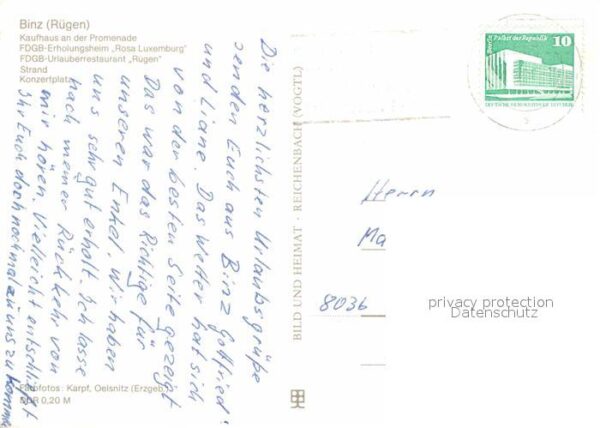 Binz (Rügen)
Kaufhaus an der Promenade
FDGB-Erholungsheim „Rosa Luxemburg"
FDGB-Urlauberrestaurant „Rügen"
Strand
Konzertplatz
Die herzlichsten Urlaubsgrüße
senden Euch aus Binz Gottfried
und Liane. Das Wetter hat sich
von der besten Seite gezeigt
Das war das Richtige für
unseren Enkel. Wir haben
uns sehr gut erholt. Ich lasse
nach meiner Rückkehr von
mir hören. Vielleicht entschließt
Ihr Euch doch noch mal zu uns zu kommen
Farbfotos: Karpf, Oelsnitz (Erzgeb.)
DDR 0,20 M
BILD UND HEIMAT · REICHENBACH (VOGTL)
Berlin, Palast der Republik
10
DEUTSCHE DEMOKRATISCHE REPUBLIK
Herrn
Ma
8036
privacy protection
Datenschutz